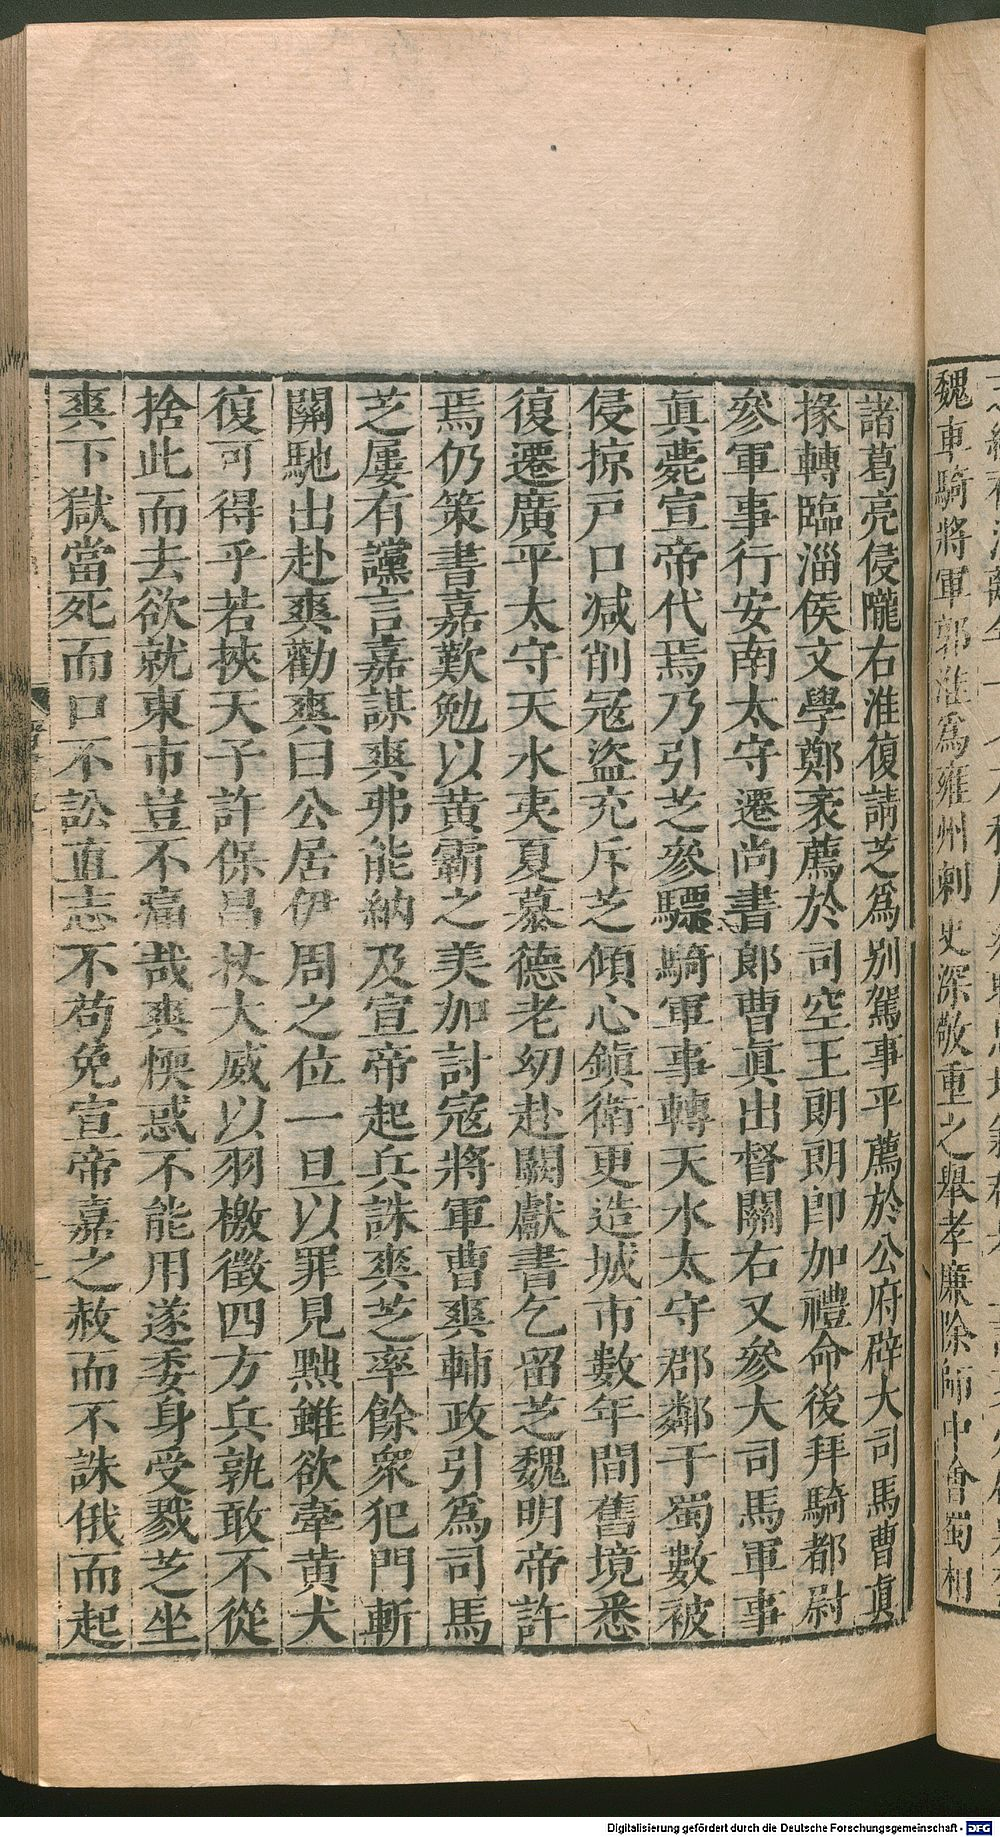 魏車騎將軍郭淮爲雍州刺史深敬重之舉孝廉除郎中會蜀相
諸葛亮侵隴右淮復請芝爲別駕事平薦於公府辟大司馬曹眞
掾轉臨淄侯文學鄭袤薦於司空王朗朗卽加禮命後拜騎都尉
參軍事行安南太守遷尚書郎曹眞出督關右又參大司馬軍事
眞薨宣帝代焉乃引芝參驃騎軍事轉天水太守郡鄰于蜀數被
侵掠戶口減削冦盜充斥芝傾心鎭衛更造城市數年間舊境悉
復遷廣平太守天水夷夏慕德老幼赴闕獻書乞留芝魏明帝許
焉仍策書嘉歎勉以黃霸之美加討寇將軍曹爽輔政引爲司馬
芝屢有讜言嘉謀爽弗能納及宣帝起兵誅爽芝率餘衆犯門斬
關馳出赴爽勸爽曰公居伊周之位一旦以罪見黜雖欲牽黃犬
復可得乎若挾天子許保昌杖大威以羽檄徵四方兵孰敢不從
捨此而去欲就東市豈不痛哉爽懊惑不能用遂委身受戮芝坐
爽下獄當死而口不訟直志不苟免宣帝嘉之赦而不誅俄而起
Digitalisierung gefördert durch die Deutsche Forschungsgemeinschaft - DFG